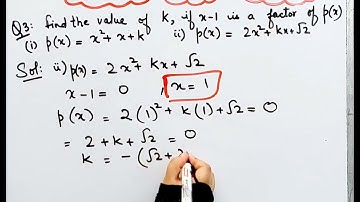 Q3: find the value of k, if x-1 is a factor of p(x)
(i) p(x) = x² + x + k ii) p(x) = 2x² + kx + √2
Sol: ii) p(x) = 2x² + kx + √2
x - 1 = 0 , x = 1
p(x) = 2(1)² + k(1) + √2 = 0
= 2 + k + √2 = 0
k = - (√2 +